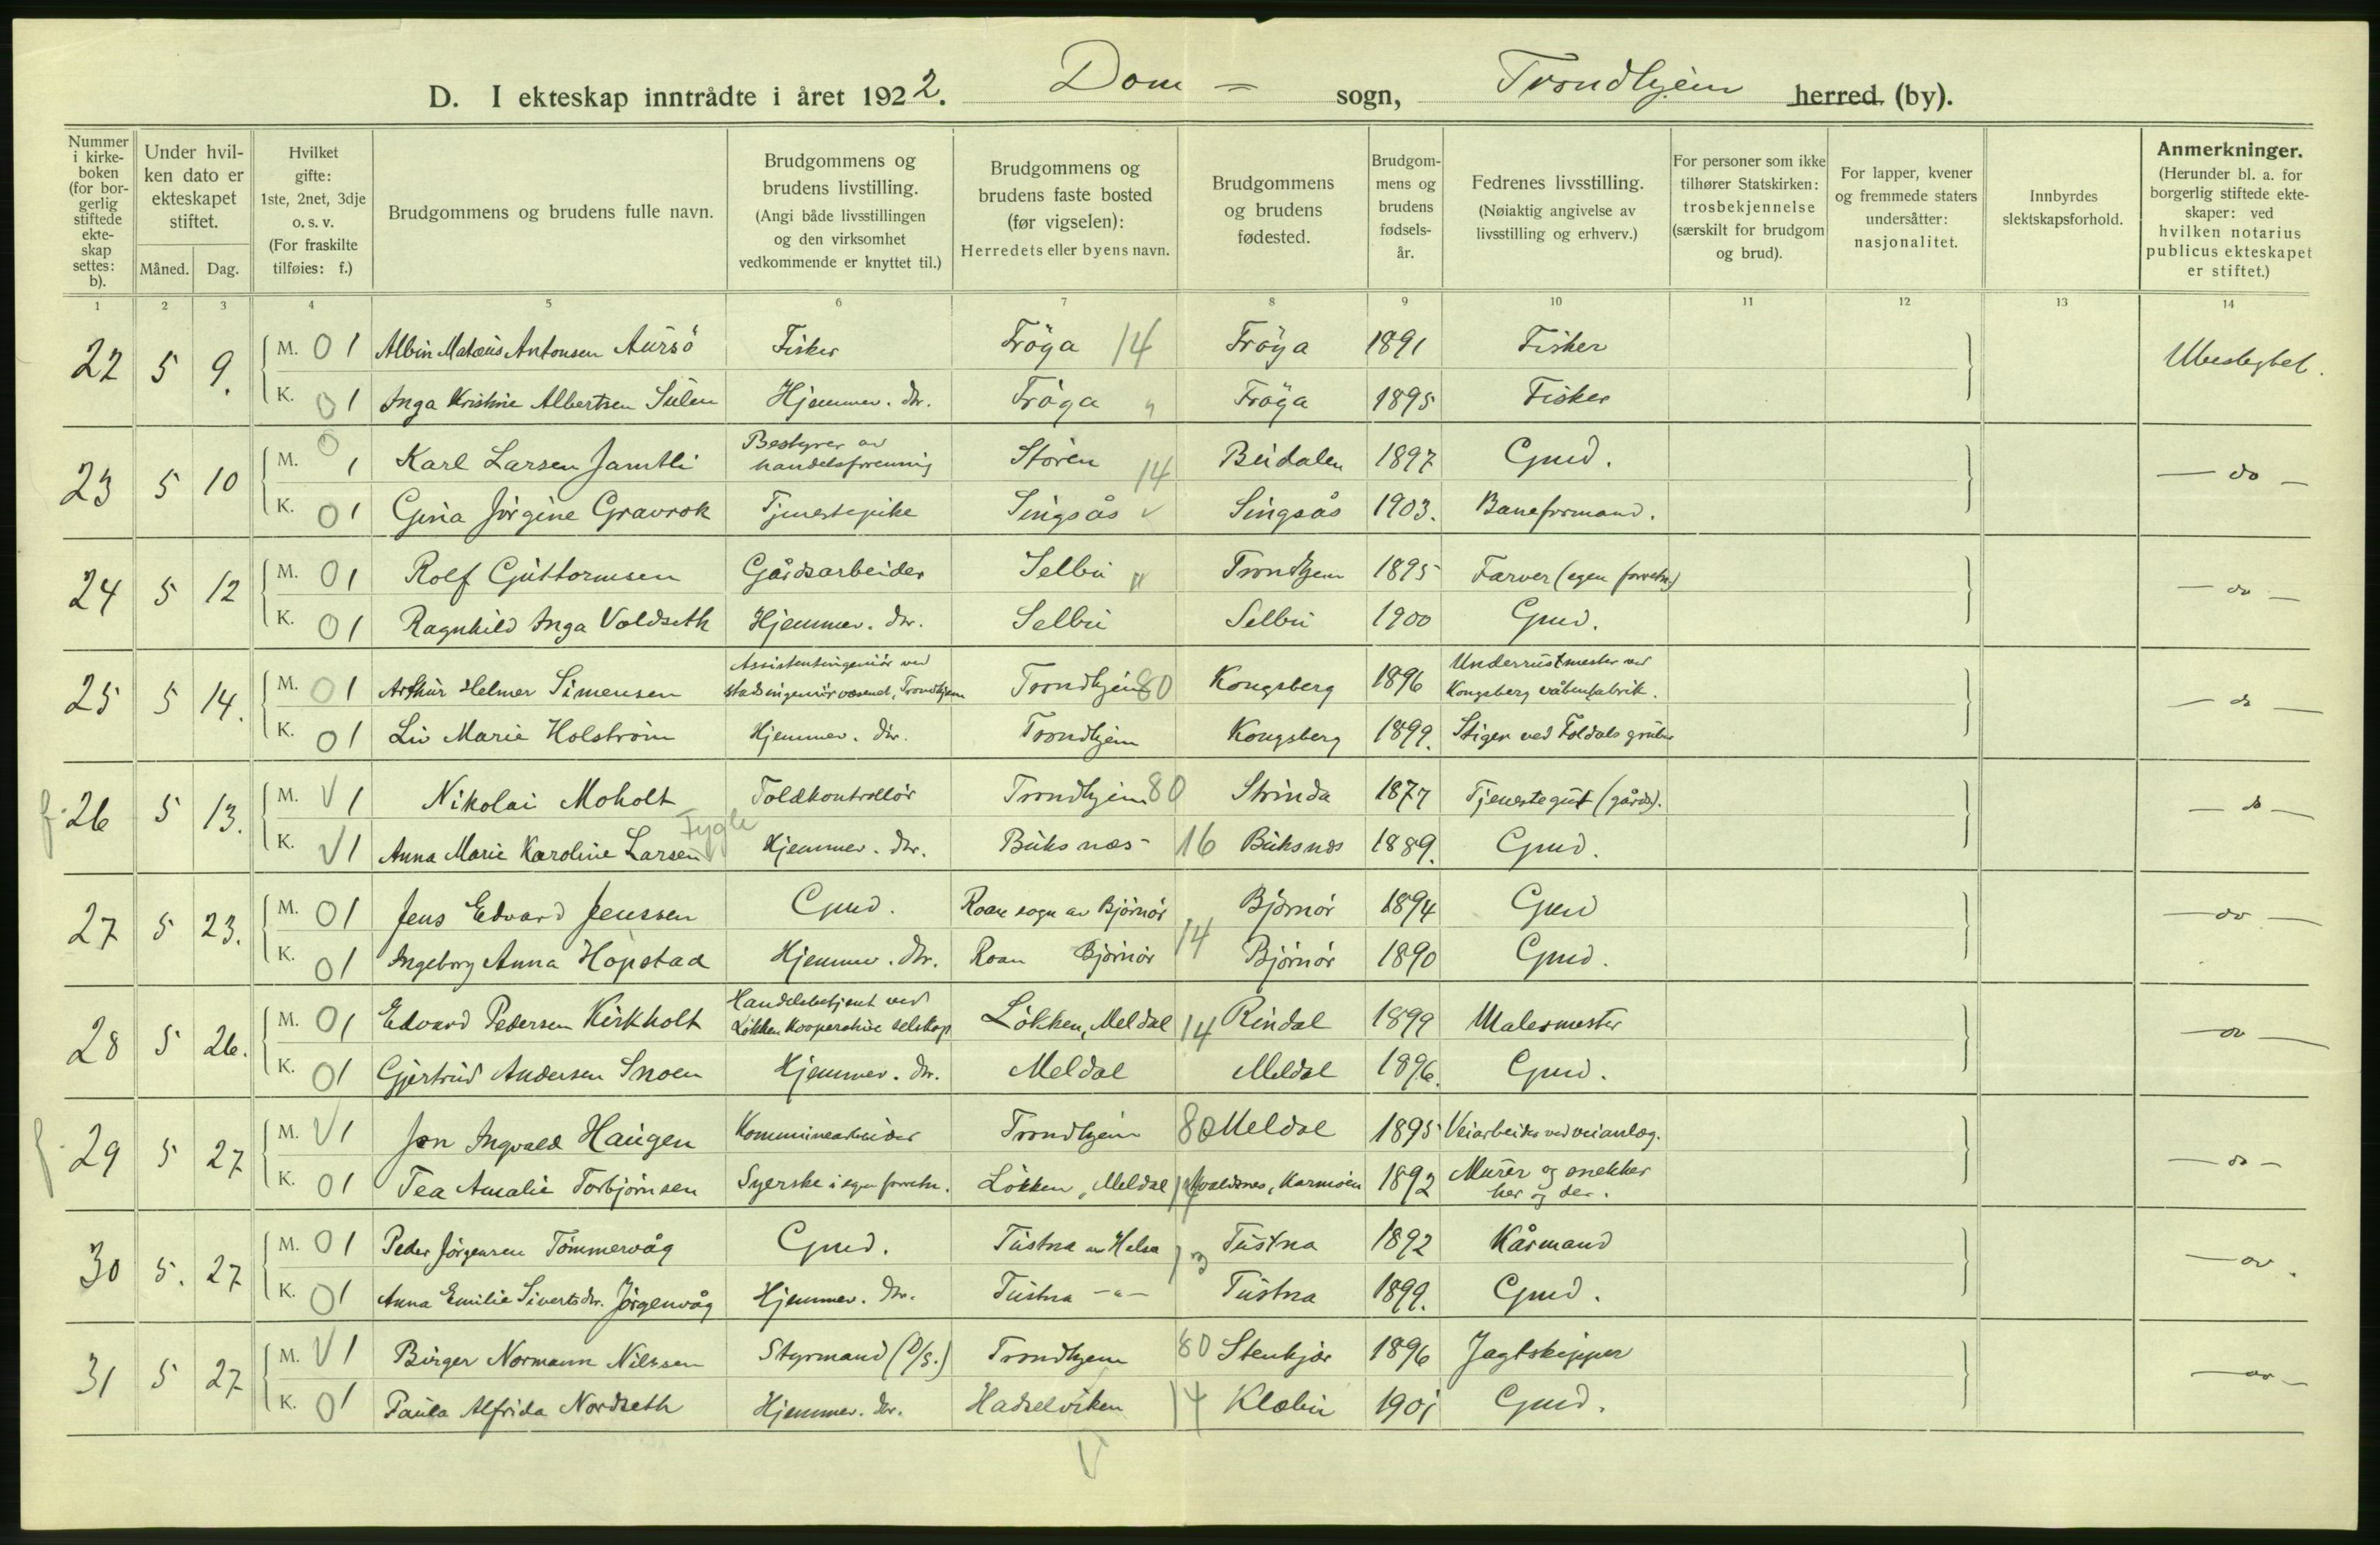 D. I ekteskap inntrådte i året 1922. Dom- sogn, Trondhjem herred (by).
Nummer i kirke-boken (for bor-gerlig stiftede ekte-skap settes: b).
Under hvil-ken dato er ekteskapet stiftet.
Måned. Dag.
Hvilket gifte: 1ste, 2net, 3dje o. s. v. (For fraskilte tilføies: f.)
Brudgommens og brudens fulle navn.
Brudgommens og brudens livstilling. (Angi både livsstillingen og den virksomhet vedkommende er knyttet til.)
Brudgommens og brudens faste bosted (før vigselen): Herredets eller byens navn.
Brudgommens og brudens fødested.
Brudgom-mens og brudens fødsels-år.
Fedrenes livsstilling. (Nøiaktig angivelse av livsstilling og erhverv.)
For personer som ikke tilhører Statskirken: trosbekjennelse (særskilt for brudgom og brud).
For lapper, kvener og fremmede staters undersåtter: nasjonalitet.
Innbyrdes slektskapsforhold.
Anmerkninger. (Herunder bl. a. for borgerlig stiftede ekte-skaper: ved hvilken notarius publicus ekteskapet er stiftet.)
1 2 3 4 5 6 7 8 9 10 11 12 13 14
22 5 9. M. 0 1 Albin Matæus Antonsen Aursö Fisker Fröya 14 Fröya 1891 Fisker Ubeslegtet.
K. 0 1 Inga Kristine Albertsen Sulen Hjemmev. dtr. Fröya " Fröya 1895 Fisker
23 5 10 M. 0 1 Karl Larsen Jamtli Bestyrer av handelsforening Stören 14 Budalen 1897 Gmd. — do —
K. 0 1 Gina Jörgine Gravrok Tjenestepike Singsås Singsås 1903. Baneformand.
24 5 12 M. 0 1 Rolf Guttormsen Gårdsarbeider Selbu " Trondhjem 1895 Farver (egen forretn.) — do —
K. 0 1 Ragnhild Inga Voldseth Hjemmev. dtr. Selbu Selbu 1900 Gmd.
25 5 14. M. 0 1 Arthur Helmer Simensen Assistentingeniör ved stadsingeniörvæsenet, Trondhjem Trondhjem 80 Kongsberg 1896 Underrustmester ved Kongsberg våbenfabrik. — do —
K. 0 1 Liv Marie Holström Hjemmev. dtr. Trondhjem Kongsberg 1899. Stiger ved Foldals gruber
f. 26 5 13. M. V 1 Nikolai Moholt Toldkontrollör Trondhjem 80 Strinda 1877 Tjenestegut (gårds). — do —
K. V 1 Anna Marie Karoline Larsen Fygle Hjemmev. dtr. Buksnæs 16 Buksnæs 1889. Gmd.
27 5 23. M. 0 1 Jens Edvard Jenssen Gmd. Roan sogn av Björnör Björnör 1894 Gmd — do —
K. 0 1 Ingeborg Anna Hopstad Hjemmev. dtr. Roan Björnör 14 Björnör 1890 Gmd.
28 5 26. M. 0 1 Edvard Pedersen Kirkholt Handelsbetjent ved Lökken Kooperative selskap Lökken, Meldal 14 Rindal 1899 Malermester — do —
K. 0 1 Gjertrud Andersen Snoen Hjemmev. dtr. Meldal Meldal 1896. Gmd.
f. 29 5 27 M. V 1 Jon Ingvald Haugen Kommunearbeider Trondhjem 80 Meldal 1895 Veiarbeider ved veianlæg. — do —
K. 0 1 Tea Amalie Torbjörnsen Syerske i egen forretn. Lökken, Meldal 14 Avaldsnes, Karmöen 1892 Murer og snekker her og der.
30 5. 27 M. 0 1 Peder Jörgensen Tömmervåg Gmd. Tustna av Halsa 13 Tustna 1892 Kårmand — do —
K. 0 1 Anna Emilie Sivertsdtr. Jörgenvåg Hjemmev. dtr. Tustna — " — Tustna 1899. Gmd.
31 5 27 M. V 1 Birger Normann Nilssen Styrmand (D/S.) Trondhjem 80 Stenkjær 1896 Jagtskipper — do —
K. 0 1 Paula Alfrida Nordseth Hjemmev. dtr. Hadselviken 14 Klæbu 1901 Gmd.